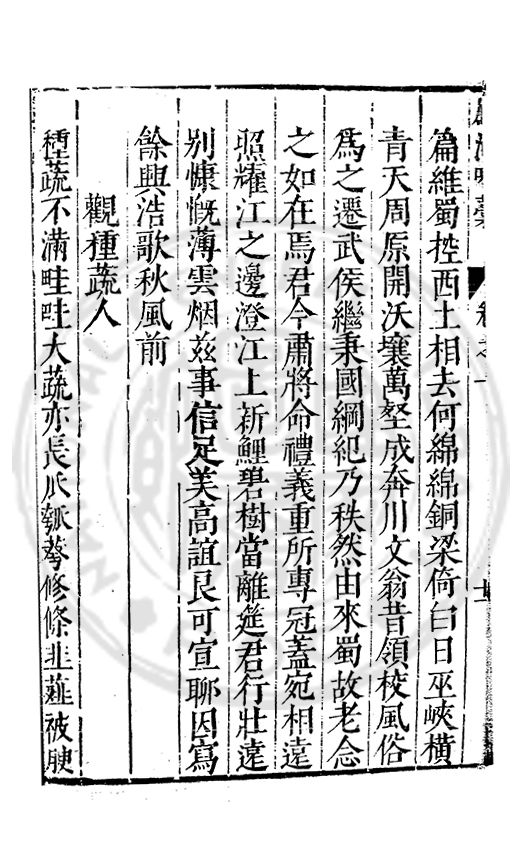 篇維蜀控西土相去何綿綿銅梁倚白日巫峽橫
青天周原開沃壤萬壑成奔川文翁昔領校風俗
爲之遷武侯繼秉國綱紀乃秩然由來蜀故老念
之如在焉君今肅將命禮義重所專冠蓋宛相遠
照耀江之邊澄江上新鯉碧樹當離筵君行壯遠
別慷慨薄雲烟茲事信足美高誼良可宣聊因寫
餘興浩歌秋風前
觀種蔬人
種蔬不滿畦畦大蔬亦長瓜瓠蔓修條韭薤被腴